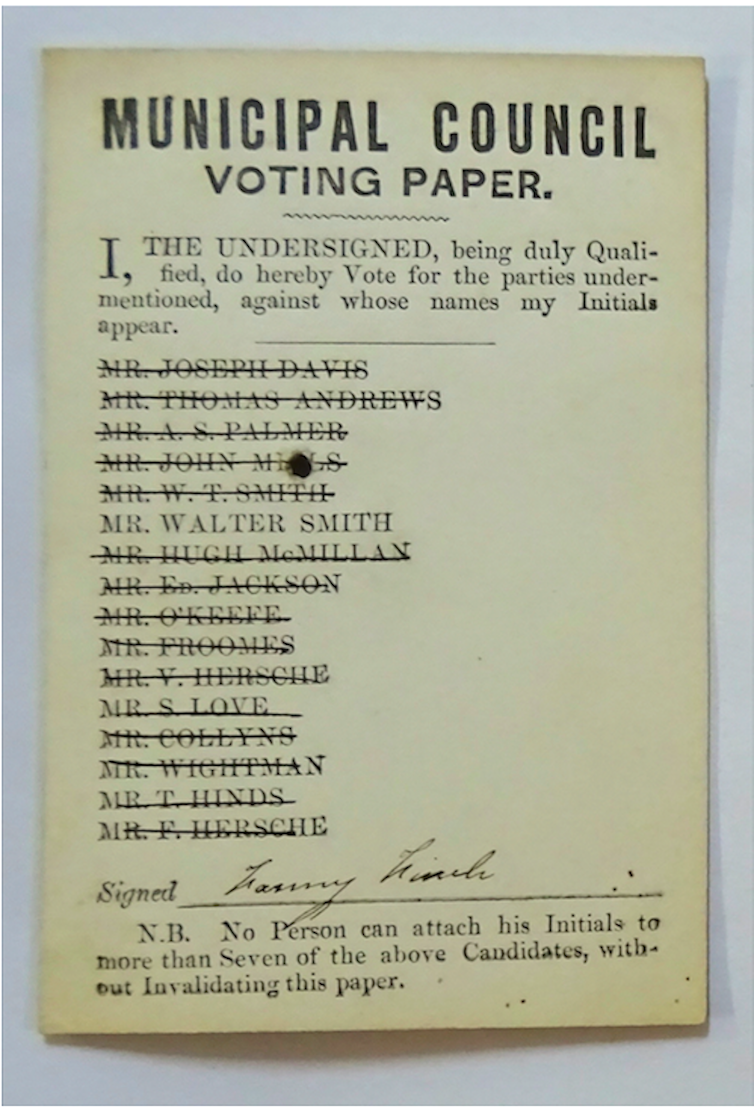 MUNICIPAL COUNCIL
VOTING PAPER.
I, THE UNDERSIGNED, being duly Quali-
fied, do hereby Vote for the parties under-
mentioned, against whose names my Initials
appear.
MR. JOSEPH DAVIS
MR. THOMAS ANDREWS
MR. A. S. PALMER
MR. JOHN
MR. W. T. SMITH
MR. WALTER SMITH
MR. HUGH McMILLAN
MR. ED. JACKSON
MR. O'KEEFE
MR. FROOMES
MR. V. HERSCHE
MR. S. LOVE
MR. COLLYNS
MR. WIGHTMAN
MR. T. HINDS
MR. F. HERSCHE
Signed Fanny Finch
N.B. No Person can attach his Initials to
more than Seven of the above Candidates, with-
out Invalidating this paper.